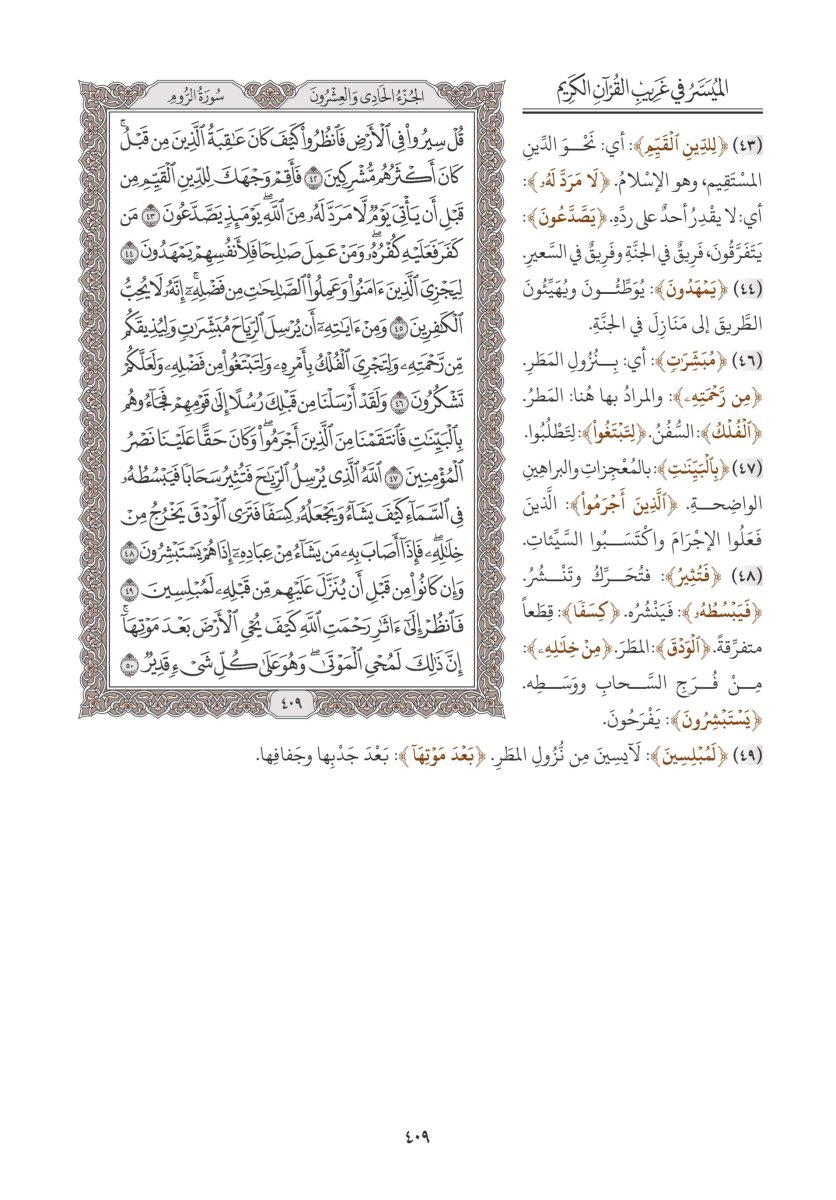 الميُسَّرُ في غَرِيبِ القُرْآنِ الكَرِيم
(٤٣) ﴿لِلدِّينِ ٱلْقَيِّمِ﴾: أي: نَحْوَ الدِّينِ
المسْتَقِيم، وهو الإسْلامُ. ﴿لَا مَرَدَّ لَهُۥ﴾:
أي: لا يقْدِرُ أحدٌ على ردِّهِ. ﴿يَصَّدَّعُونَ﴾:
يَتَفَرَّقُونَ، فَرِيقٌ في الجنَّةِ وفَرِيقٌ في السَّعيرِ.
(٤٤) ﴿يَمْهَدُونَ﴾: يُوَطِّئُونَ ويُهَيِّئُونَ
الطَّريقَ إلى مَنَازِلَ في الجنَّةِ.
(٤٦) ﴿مُبَشِّرَٰتٍ﴾: أي: بِنُزُولِ المَطَرِ.
﴿مِن رَّحْمَتِهِۦ﴾: والمرادُ بها هُنا: المَطرُ.
﴿ٱلْفُلْكُ﴾: السُّفُنُ. ﴿لِتَبْتَغُوا۟﴾: لِتَطْلُبوا.
(٤٧) ﴿بِٱلْبَيِّنَٰتِ﴾: بالمُعْجِزاتِ والبراهينِ
الواضِحةِ. ﴿ٱلَّذِينَ أَجْرَمُوا۟﴾: الَّذينَ
فَعَلُوا الإجْرَامَ واكْتَسَبُوا السَّيِّئاتِ.
(٤٨) ﴿فَتُثِيرُ﴾: فتُحَرِّكُ وتَنْشُرُ.
﴿فَيَبْسُطُهُۥ﴾: فيَنْشُرُه. ﴿كِسَفًا﴾: قِطَعاً
متفرِّقةً. ﴿ٱلْوَدْقَ﴾: المطَرَ. ﴿مِنْ خِلَٰلِهِۦ﴾:
مِنْ فُرَجِ السَّحابِ ووَسَطِه.
﴿يَسْتَبْشِرُونَ﴾: يَفْرَحُونَ.
(٤٩) ﴿لَمُبْلِسِينَ﴾: لَآيِسِينَ مِن نُّزُولِ المطَرِ. ﴿بَعْدَ مَوْتِهَآ﴾: بَعْدَ جَدْبِها وجَفافِها.
الجُزْءُ الحَادِي وَالعِشْرُونَ
سُورَةُ الرُّومِ
قُلْ سِيرُوا۟ فِى ٱلْأَرْضِ فَٱنظُرُوا۟ كَيْفَ كَانَ عَٰقِبَةُ ٱلَّذِينَ مِن قَبْلُ ۚ
كَانَ أَكْثَرُهُم مُّشْرِكِينَ ٤٢ فَأَقِمْ وَجْهَكَ لِلدِّينِ ٱلْقَيِّمِ مِن
قَبْلِ أَن يَأْتِىَ يَوْمٌ لَّا مَرَدَّ لَهُۥ مِنَ ٱللَّهِ ۖ يَوْمَئِذٍ يَصَّدَّعُونَ ٤٣ مَن
كَفَرَ فَعَلَيْهِ كُفْرُهُۥ ۖ وَمَنْ عَمِلَ صَٰلِحًا فَلِأَنفُسِهِمْ يَمْهَدُونَ ٤٤
لِيَجْزِىَ ٱلَّذِينَ ءَامَنُوا۟ وَعَمِلُوا۟ ٱلصَّٰلِحَٰتِ مِن فَضْلِهِۦٓ ۚ إِنَّهُۥ لَا يُحِبُّ
ٱلْكَٰفِرِينَ ٤٥ وَمِنْ ءَايَٰتِهِۦٓ أَن يُرْسِلَ ٱلرِّيَاحَ مُبَشِّرَٰتٍ وَلِيُذِيقَكُم
مِّن رَّحْمَتِهِۦ وَلِتَجْرِىَ ٱلْفُلْكُ بِأَمْرِهِۦ وَلِتَبْتَغُوا۟ مِن فَضْلِهِۦ وَلَعَلَّكُمْ
تَشْكُرُونَ ٤٦ وَلَقَدْ أَرْسَلْنَا مِن قَبْلِكَ رُسُلًا إِلَىٰ قَوْمِهِمْ فَجَآءُوهُم
بِٱلْبَيِّنَٰتِ فَٱنتَقَمْنَا مِنَ ٱلَّذِينَ أَجْرَمُوا۟ ۖ وَكَانَ حَقًّا عَلَيْنَا نَصْرُ
ٱلْمُؤْمِنِينَ ٤٧ ٱللَّهُ ٱلَّذِى يُرْسِلُ ٱلرِّيَٰحَ فَتُثِيرُ سَحَابًا فَيَبْسُطُهُۥ
فِى ٱلسَّمَآءِ كَيْفَ يَشَآءُ وَيَجْعَلُهُۥ كِسَفًا فَتَرَى ٱلْوَدْقَ يَخْرُجُ مِنْ
خِلَٰلِهِۦ ۖ فَإِذَآ أَصَابَ بِهِۦ مَن يَشَآءُ مِنْ عِبَادِهِۦٓ إِذَا هُمْ يَسْتَبْشِرُونَ ٤٨
وَإِن كَانُوا۟ مِن قَبْلِ أَن يُنَزَّلَ عَلَيْهِم مِّن قَبْلِهِۦ لَمُبْلِسِينَ ٤٩
فَٱنظُرْ إِلَىٰٓ ءَاثَٰرِ رَحْمَتِ ٱللَّهِ كَيْفَ يُحْىِ ٱلْأَرْضَ بَعْدَ مَوْتِهَآ ۚ
إِنَّ ذَٰلِكَ لَمُحْىِ ٱلْمَوْتَىٰ ۖ وَهُوَ عَلَىٰ كُلِّ شَىْءٍ قَدِيرٌ ٥٠
٤٠٩
٤٠٩